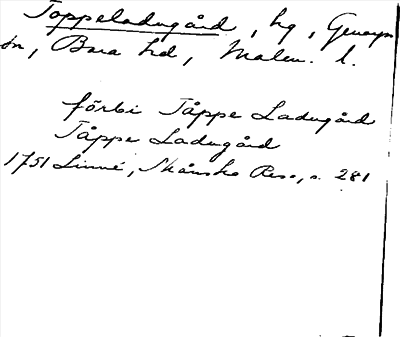 Toppeladugård, hg, Genarps
sn, Bara hd, Malm. l.
förbi Tåppe Ladugård
Tåppe Ladugård
1751 Linné, Skånska Resa, s. 281